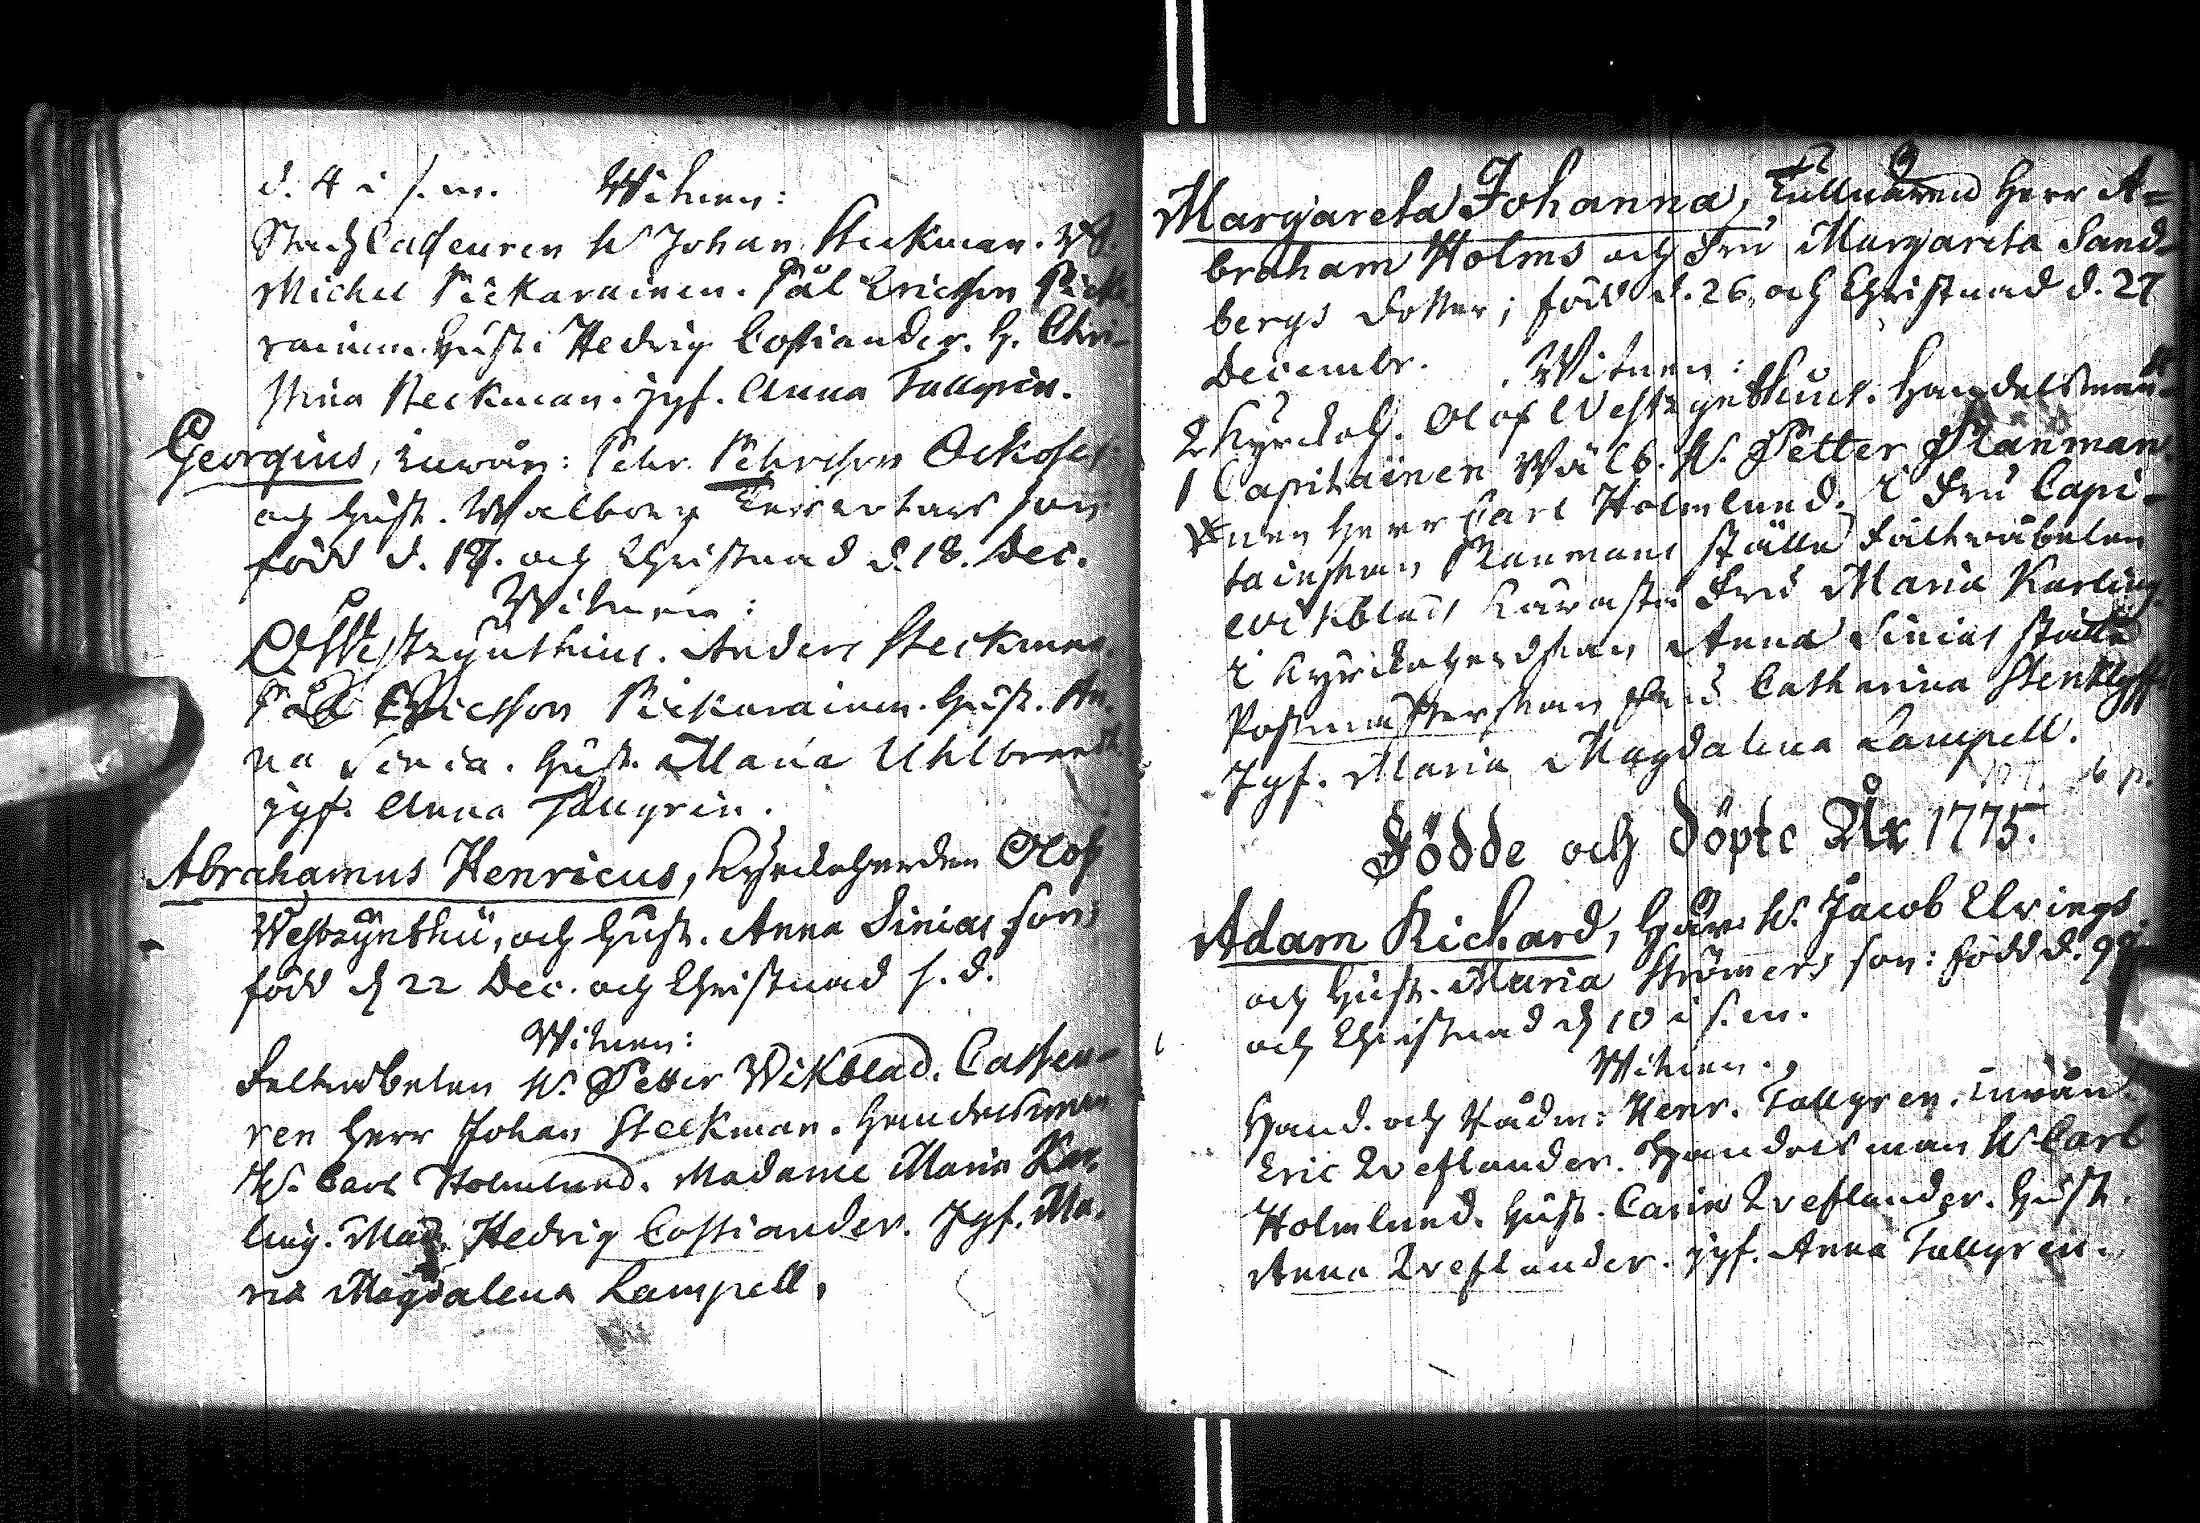 d. 4 i s. m. Witnen:
Stads Casseuren H. Johan Steckman.
Michel Pickarainen. Pål Ericsson Picka
rainen. Hust: Hedvig Costiander. H. Chri-
stina Steckman. jgf. Anna Tallgrén.
Georgius, Inwån: Petr. Petersson
och Hust. Walborg son
född d. 17. och Christnad d. 18. Dec.
Witnen:
O. Westzynthius. Anders Steckman.
Pål Ericsson Pickarainen. Hust. An-
na Sinia. Hust. Maria Uhlbrandt
jgf. Anna Tallgrén.
Abrahamus Henricus, Kyrckoherden Olof
Westzynthii, och Hust. Anna Sinias son;
född d. 22 Dec. och Christnad s. d.
Witnen:
Feltwäbelen H. Petter Wikblad. Casseu-
ren Herr Johan Steckman. Handelsman
H. Carl Holmlund. Madame Maria Kar-
ling. Mad. Hedvig Costiander. Jgf. Ma-
ria Magdalena Lampell.
Margareta Johanna, Tullnären Herr A-
braham Holms och Fru Margareta Sand-
bergs dotter; född d. 26, och Christnad d. 27
Decembr. Witnen:
2 Kyrckoh. Olof Westzynthius. Handelsman-
1 Capitainen Wälb. H. Petter Ranman.
nen Herr Carl Holmlund. I Fru Capi-
tainskan Ranmans ställe Fältwäbelen
Wikblads Käraste Fru Maria Karling.
I Kyrckoherdskan Anna Sinias ställe
Postmästerskan Fru Catharina
Jgf. Maria Magdalena Lampell.
Födde och Döpte År 1775.
Adam Richard, H. Jacob Elvings
och Hust. Maria Strömers son: född d. 9
och Christnad d. 10 i s. m.
Witnen.
Hand. och Rådm: Henr. Tallgren. Inwån.
Eric Qveflander. Handelsman H. Carl
Holmlund. Hust. Carin Qveflander. Hust.
Anna Qveflander. jgf. Anna Tallgrén.